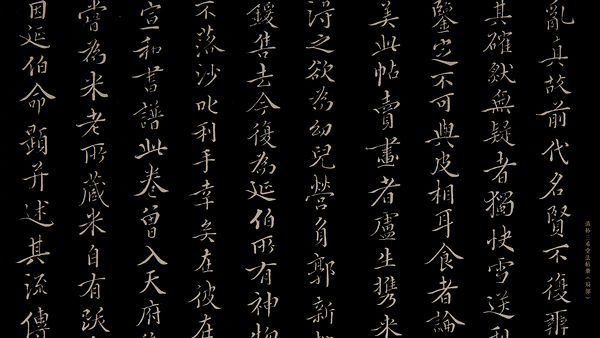 亂真故前代名賢不復辨
其確然無疑者獨快雪送
鑒定不可與皮相耳食者論
美此帖賣畫者盧生攜來
淂之欲為幼兒營負郭新
鍰售去今復為延伯所有神物
不落沙叱利手幸矣在彼在
宣和書譜此卷曾入天府
嘗為米老所藏米自有跋
因延伯命題并述其流傳
清拓三希堂法帖册（局部）